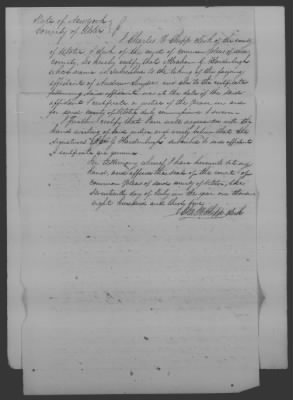 State of New York }
County of Ulster } ss
I Charles W. Chipp clerk of the county
of Ulster & clerk of the court of common pleas of said
county, do hereby certify that Abraham G. Hardenbergh
whose name is subscribed to the taking of the foregoing
affidavits of Andrew and also to the certificate
following said affidavits was at the date of the said
affidavit & certificate a justice of the peace in and
for said county of Ulster, duly commissioned & sworn
I further certify that I am well acquainted with the
hand writing of said justice and verily believe that the
signatures of G. Hardenbergh subscribed to said affidavit
& certificate are genuine
In testimony whereof I have hereunto set my
hand, and affixed the seal of the court of
common pleas of said county of Ulster, this
seventeenth day of July in the year one thousand
eight hundred and thirty five
Cha. W. Chipp clerk